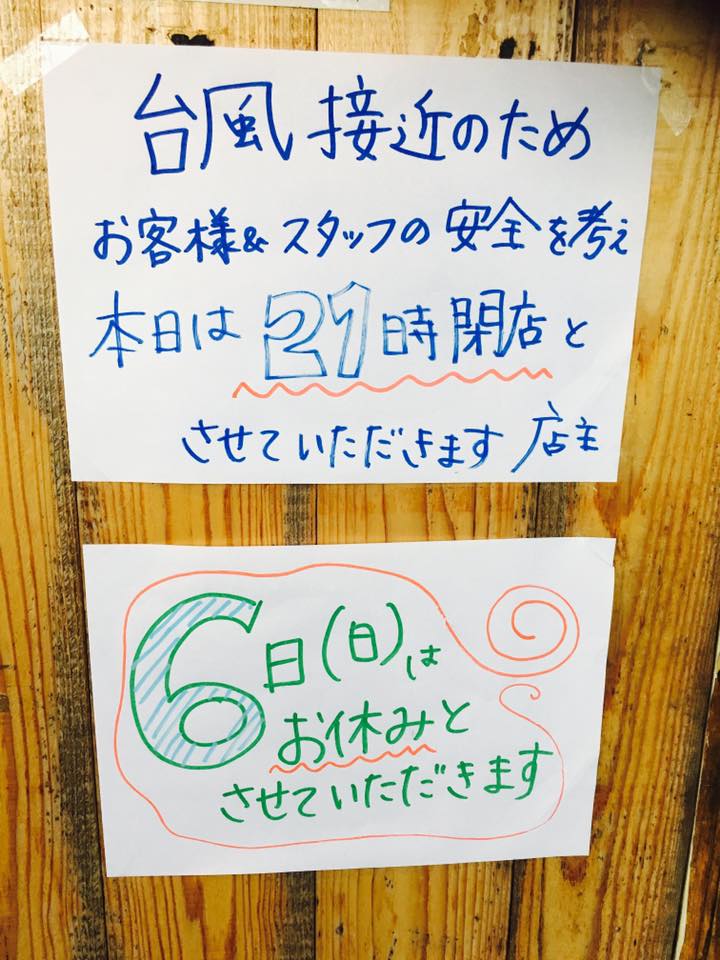 台風接近のため
お客様&スタッフの安全を考え
本日は21時閉店と
させていただきます 店主
6日(日)は
お休みと
させていただきます